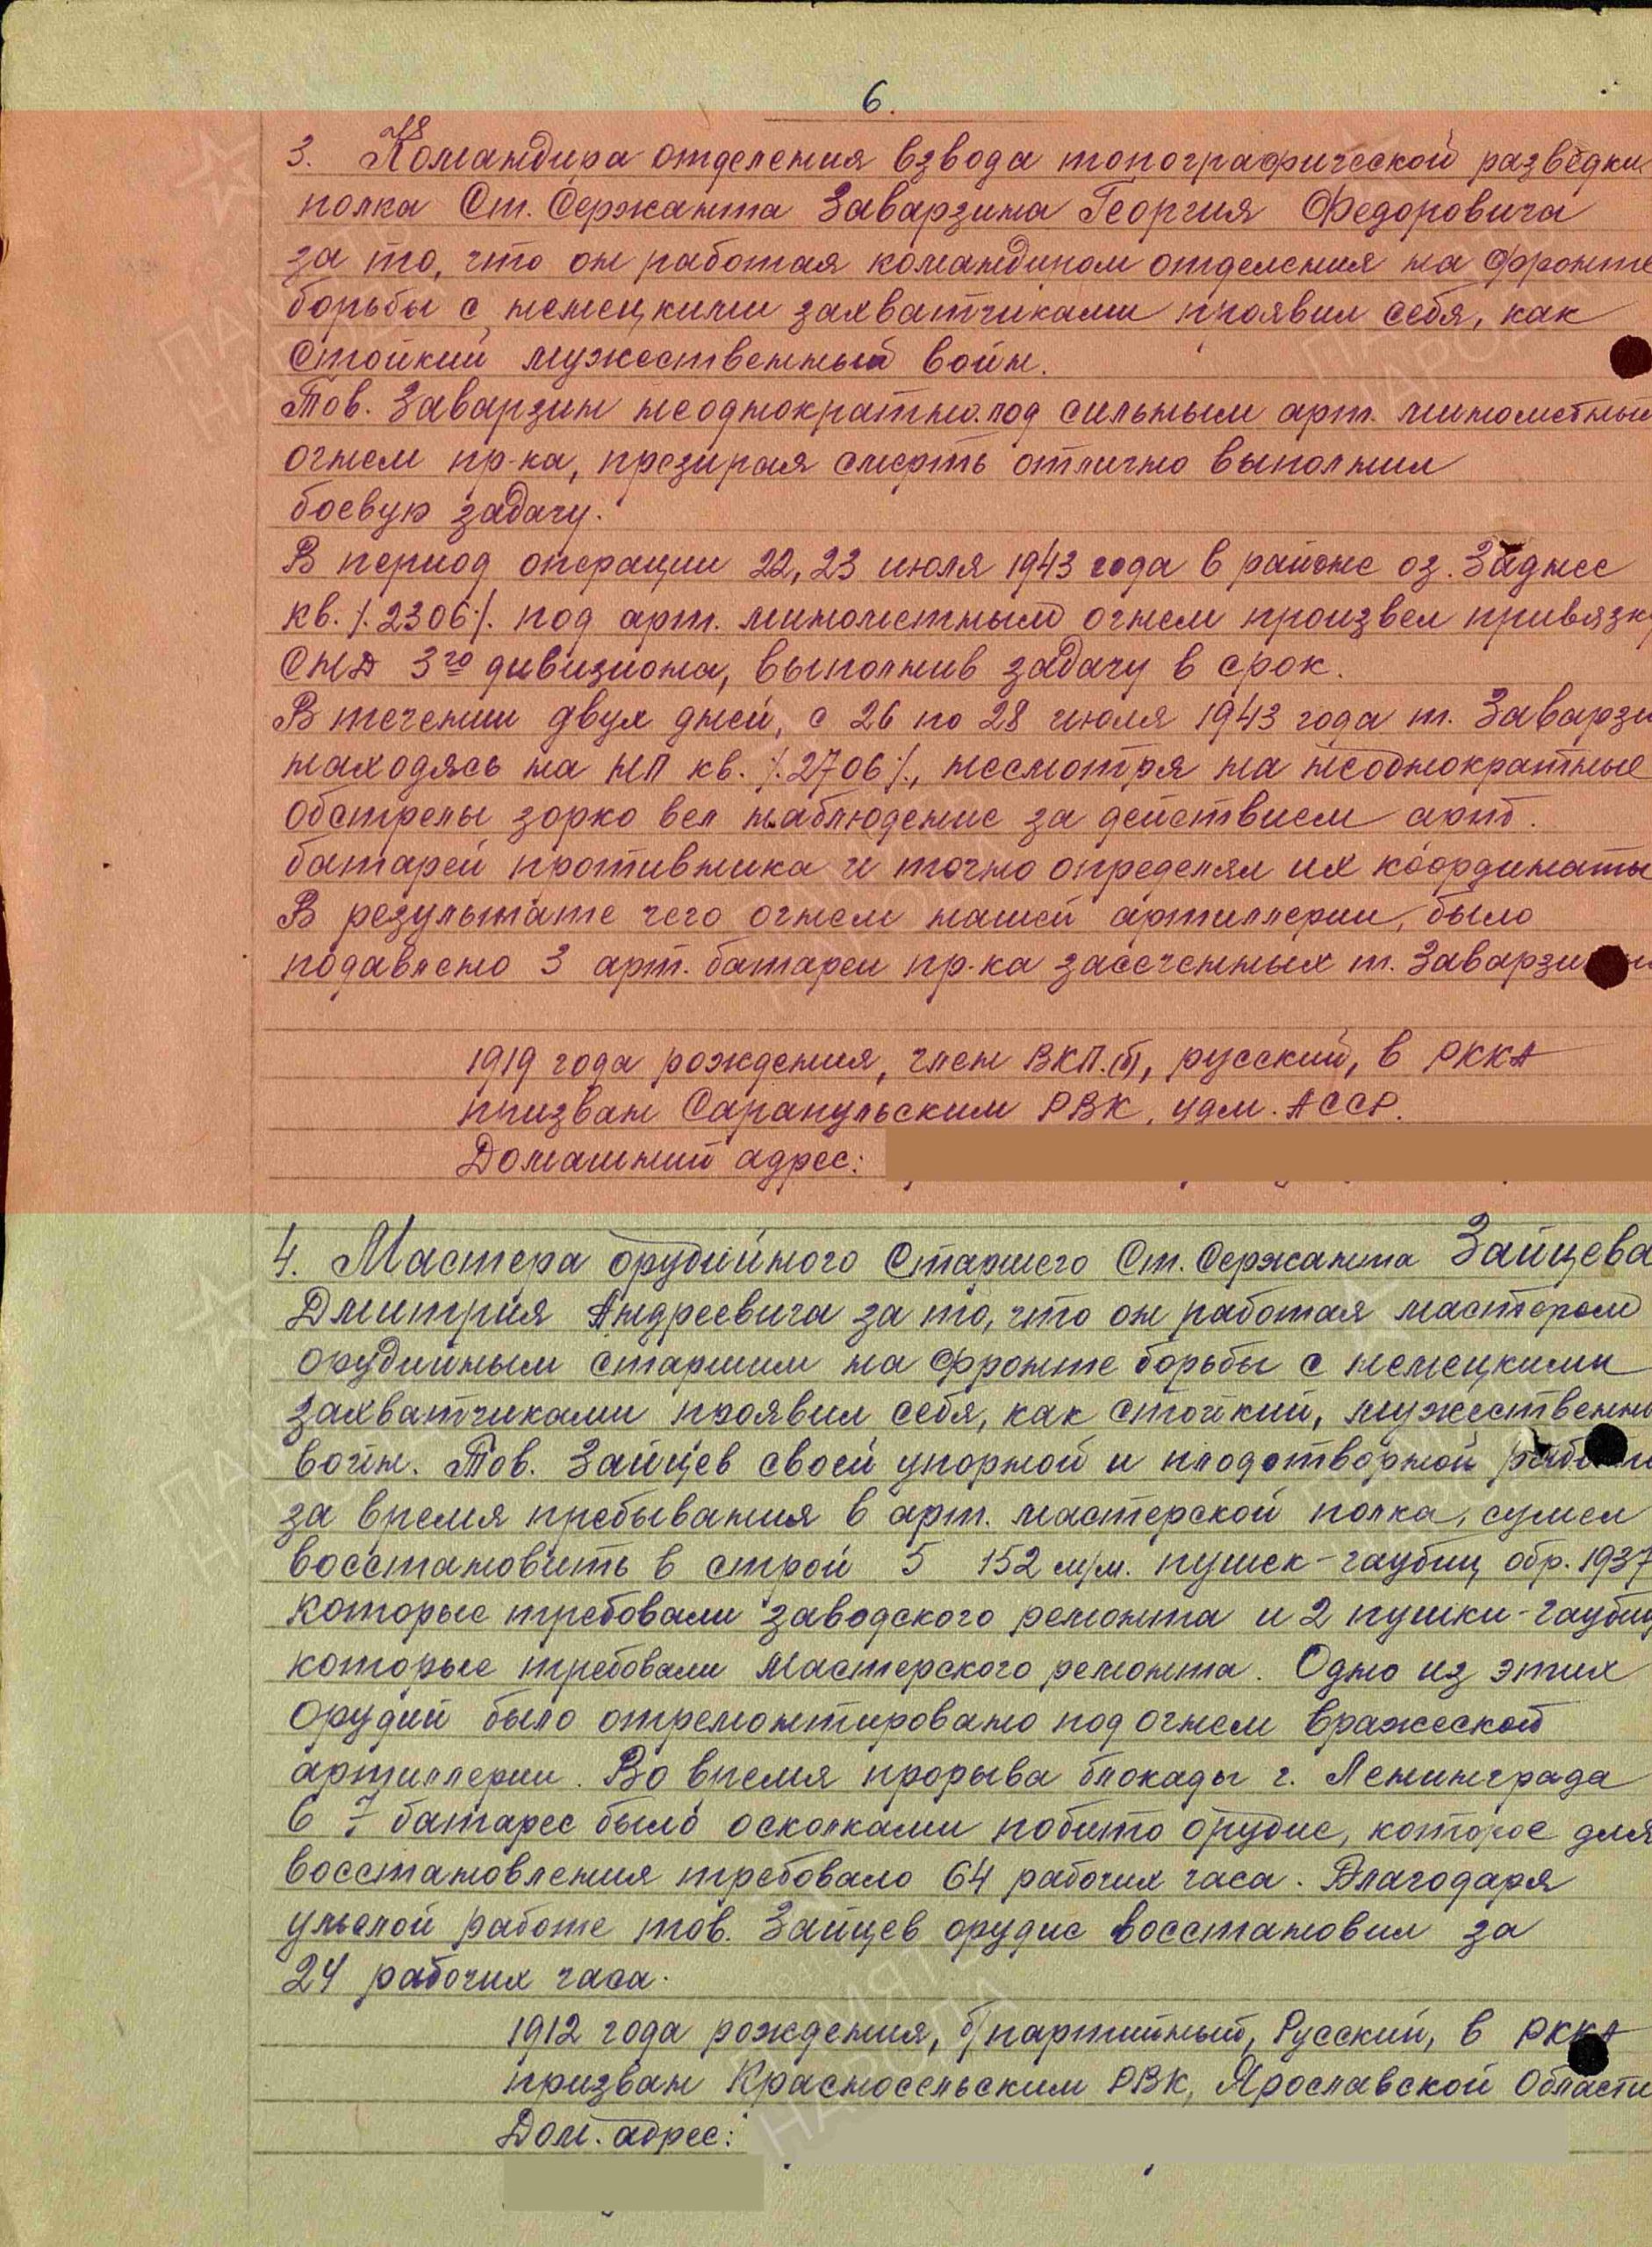 6.
3. Командира отделения взвода топографической разведки
полка Ст. Сержанта Заварзина Георгия Федоровича
за то, что он работая командиром отделения на фронте
борьбы с немецкими захватчиками проявил себя, как
стойкий мужественный войн.
Тов. Заварзин неоднократно под сильным арт. минометным
огнем пр-ка, презирая смерть отлично выполнил
боевую задачу.
В период операции 22, 23 июля 1943 года в районе оз. Заднее
кв. /.2306/. под арт. минометным огнем произвел привязк
СНД 3го дивизиона, выполнив задачу в срок.
В течении двух дней, с 26 по 28 июля 1943 года т. Заварзи
находясь на НП кв. /.2706/., несмотря на неоднократные
обстрелы зорко вел наблюдение за действием арт.
батарей противника и точно определял их координаты
В результате чего огнем нашей артиллерии, было
подавлено 3 арт. батареи пр-ка засеченных т. Заварзи
1919 года рождения, член ВКП.(б), русский, в РККА
призван Сарапульским РВК, Удм. АССР.
Домашний адрес:
4. Мастера орудийного старшего Ст. Сержанта Зайцева
Дмитрия Андреевича за то, что он работая мастером
орудийным старшим на фронте борьбы с немецкими
захватчиками проявил себя, как стойкий, мужественны
войн. Тов. Зайцев своей упорной и плодотворной
за время пребывания в арт. мастерской полка, сумел
восстановить в строй 5 152 м/м. пушек-гаубиц обр. 1937
которые требовали заводского ремонта и 2 пушки-гаубиц
которые требовали мастерского ремонта. Одно из этих
орудий было отремонтировано под огнем вражеской
артиллерии. Во время прорыва блокады г. Ленинграда
в 7 батарее было осколками побито орудие, которое для
восстановления требовало 64 рабочих часа. Благодаря
умелой работе тов. Зайцев орудие восстановил за
24 рабочих часа.
1912 года рождения, б/партийный, Русский, в РККА
призван Красносельским РВК, Ярославской области
Дом. адрес:
ПАМЯТЬ НАРОДА